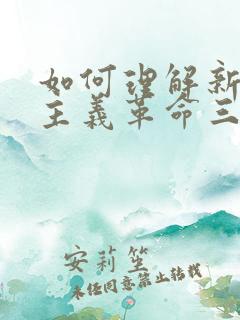 如何理解新
主义革命三
安莉笙
未经同意禁止转载